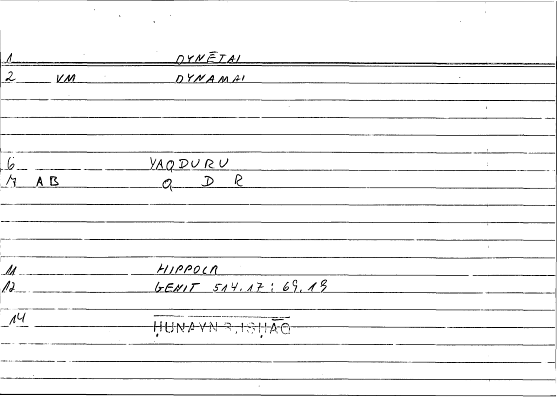 1 DYNĒTAI
2 VM DYNAMAI
6 YAQDURU
7 AB Q D R
11 HIPPOCR
12 GENIT 514.17 : 69.19
14 ḤUNAYN B. ISḤĀQ